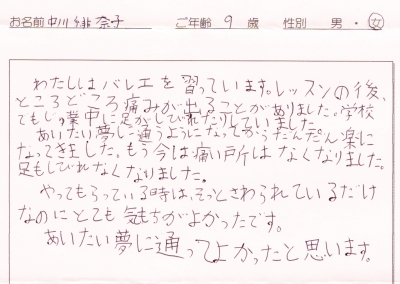 お名前 中川 緋奈子 ご年齢 9 歳 性別 男・女
わたしはバレエを習っています。レッスンの後、
ところどころ痛みが出ることがありました。学校
でもじゅ業中に足がしびれたりしていました。
あいたい夢に通うようになってからだんだん楽に
なってきました。もう今は痛い所はなくなりました。
足もしびれなくなりました。
やってもらっている時は、そっとさわられているだけ
なのにとても気もちがよかったです。
あいたい夢に通ってよかったと思います。